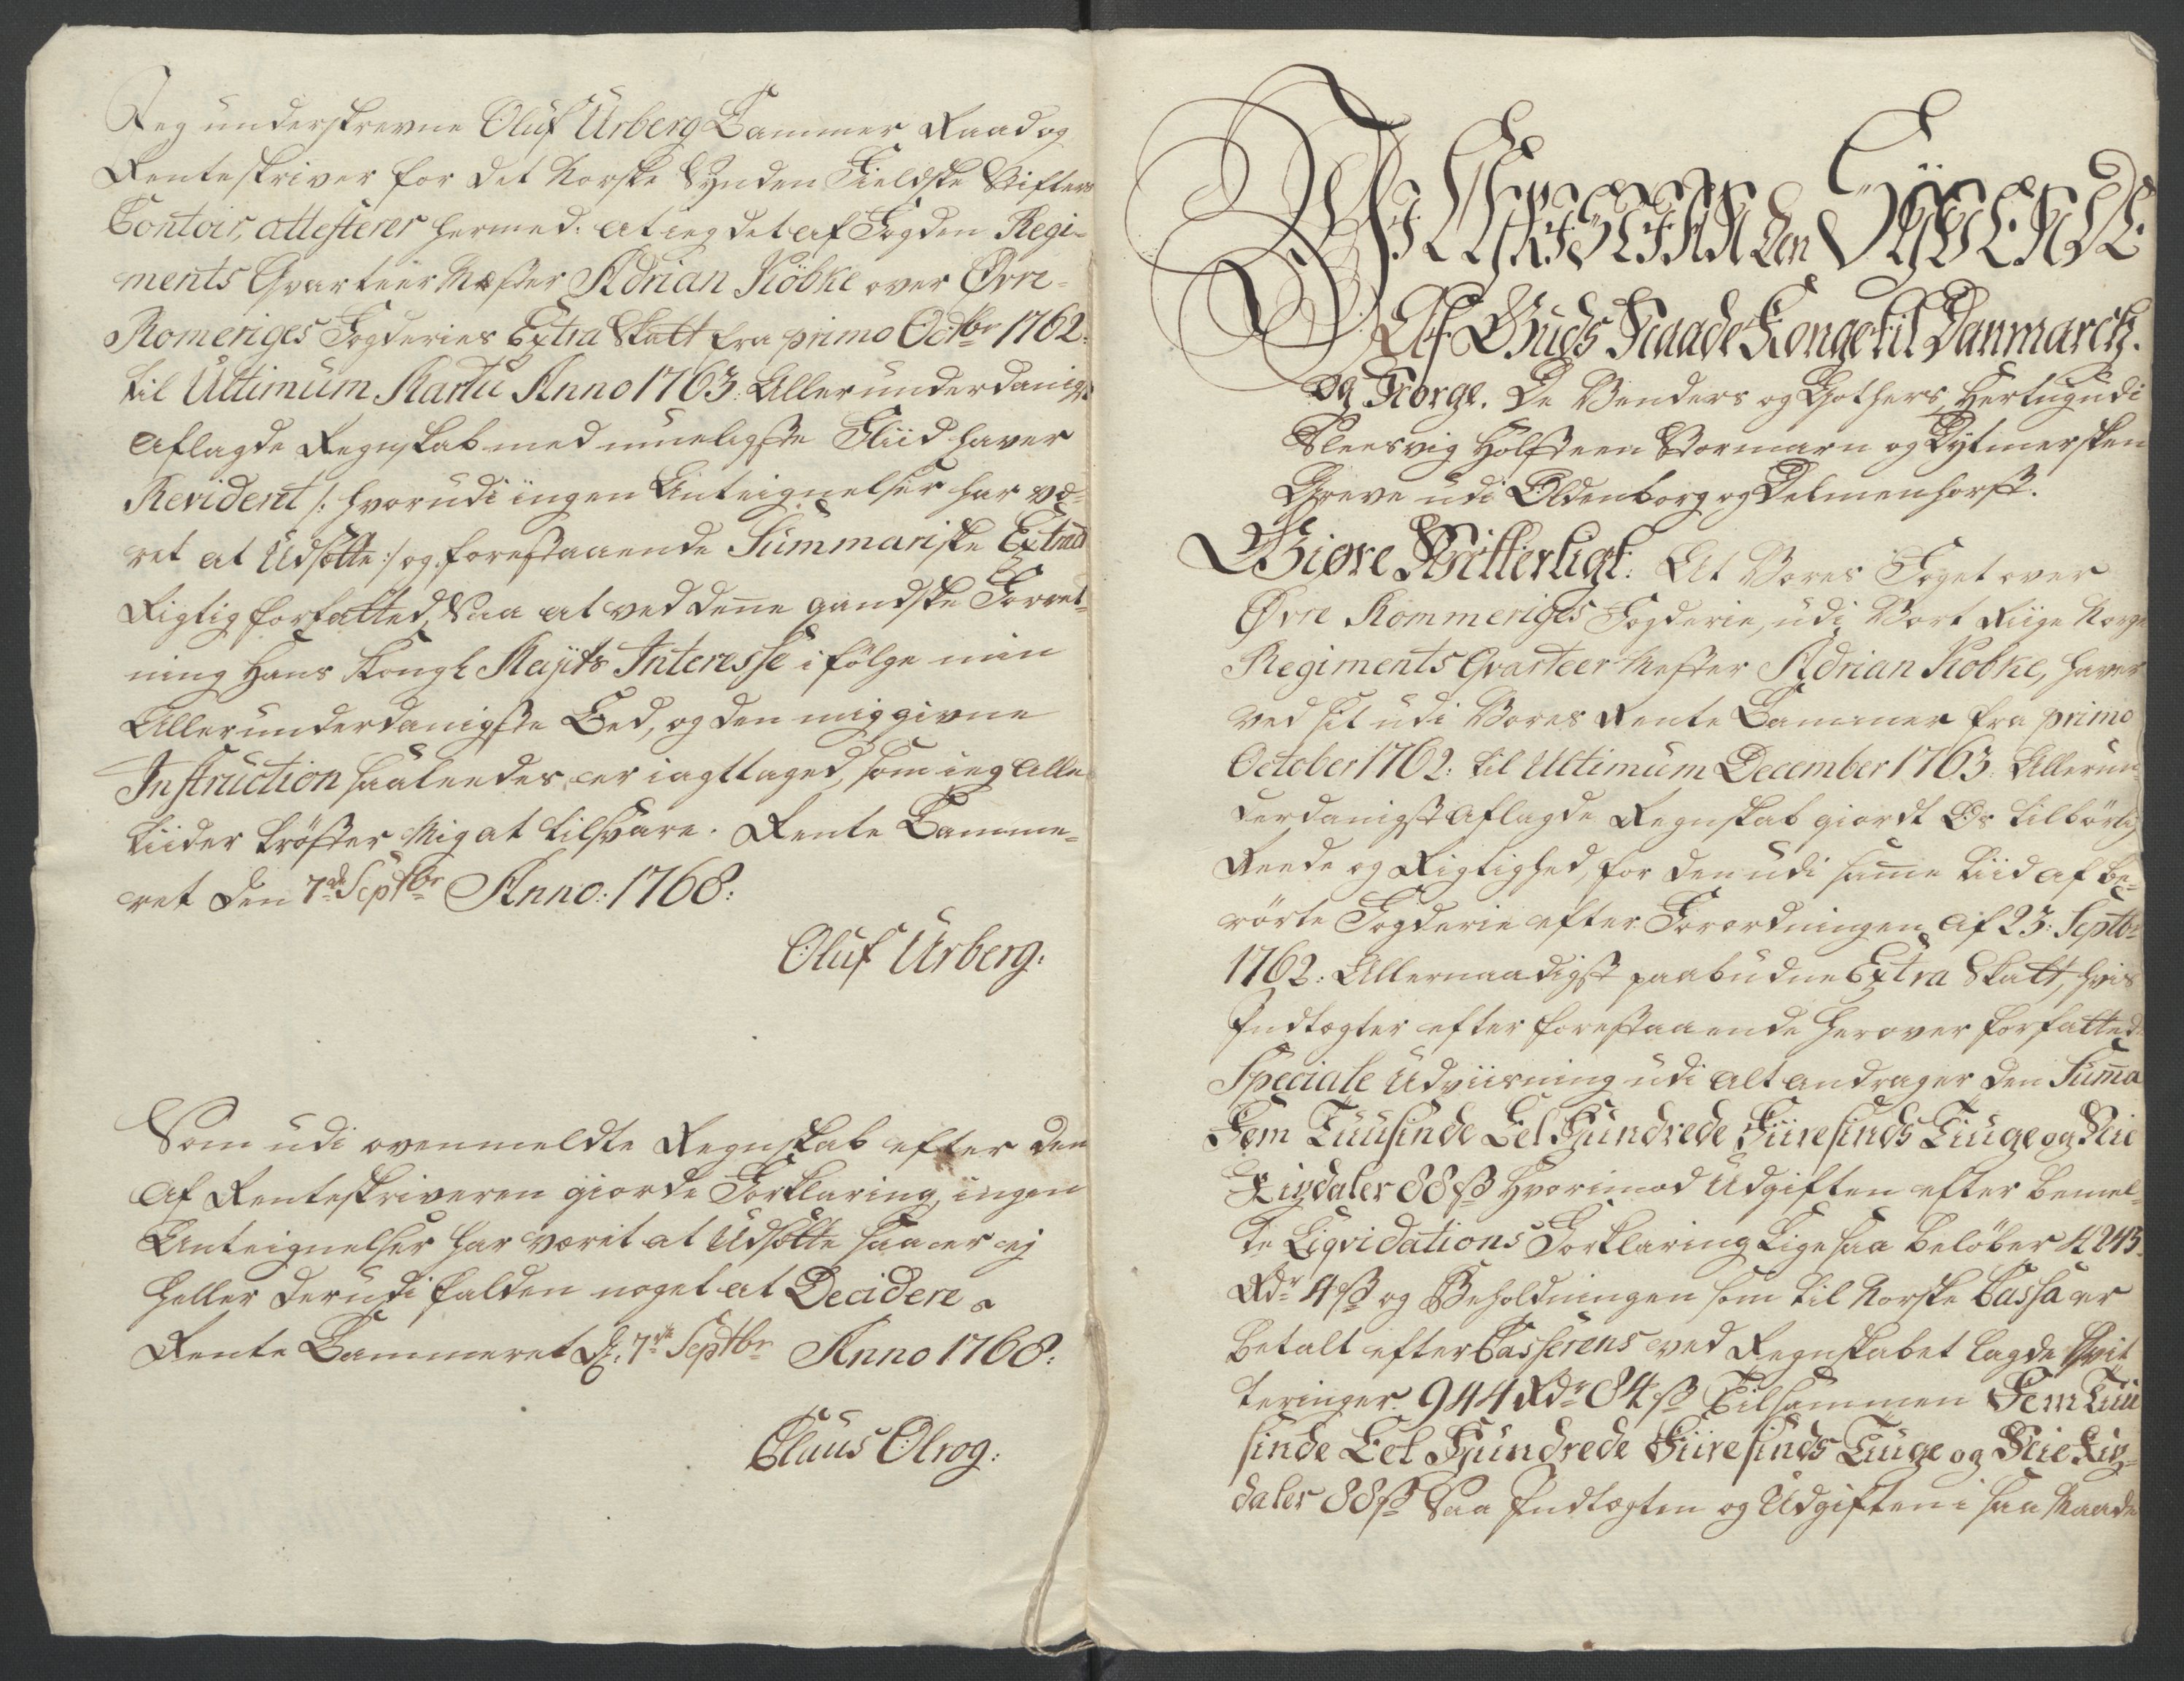 Jeg underskrevne Oluf Urberg Cammer Raad og
Renteskriver for det Norske Synden Fieldske Stifters
Contoir, attesterer hermed: at ieg det af Fogden Regi-
ments Qvarteer Mester Adrian Köbke over Øvre-
Romeriges Fogderies Extra Skatt fra primo Octbr 1762.
til Ultimum Martii Anno 1763: Allerunderdanigst
aflagde Regnskab med mueligste Fliid haver
Revideret /: hvorudi ingen Anteignelser har væ-
ret at Udsætte :/ og forestaaende Summariske Extract
Rigtig forfatted, Saa at ved denne gandske Forret-
ning Hans Kongl Mayts Interesse i fölge min
Allerunderdanigste Eed, og den mig givne
Instruction saaleedes er iagttaget, som ieg Alle
tiider tröster Mig at tilsvare. Rente Camme-
ret den 7de Septbr Anno: 1768:
Oluf Urberg.
Som udi ovenmeldte Regnskab efter den
af Renteskriveren giorde Forklaring, ingen
Anteignelser har værit at Udsætte saa er ej
heller derudi falden noget at Decidere.
Rente Cammeret d. 7de Septbr Anno 1768:
Claus Olrog.
Wi Christian den Syvende
Af Guds Naade Konge til Danmarck.
og Norge. De Venders og Gothers, Hertug udi
Sleesvig Holsteen Stormarn og Dytmersken
Greve udi Oldenborg og Delmenhorst.
Giøre Witterligt: At Vores Foget over
Øvre Rommeriges Fogderie, udi Vort Riige Norge
Regiments Qvarteer Mester Adrian Kobke, haver
ved sit udi Vores Rente Cammer fra primo
October 1762: til Ultimum December 1763: Allerun-
derdanigst aflagde Regnskab giordt Os tilbörlig
Reede og Rigtighed, for den udi samme tiid af be-
rörte Fogderie efter Forordningen af 23: Septbr
1762: Allernaadigst paabudne Extra Skatt, hvis
Indtægter efter forestaaende herover forfatted
Speciale Udviisning udi alt andrager den Summa
Fem Tuusinde Eet Hundrede Fiiresinds Tiuge og Nie
Rixdaler 88 ß Hvorimod Udgiften efter bemel-
te Liqvidations Forklaring Ligesaa beløber 4245
Rdr 4 ß og Beholdningen som til Norske Cassa er
betalt efter Casserens ved Regnskabet lagde Qvit
teringer 944 Rdr 84 ß Tilsammen Fem Tuu
sinde Eet Hundrede Fiiresinds Tiuge og Nie Rix-
daler 88 ß Saa Indtægten og Udgiften i saa Maade